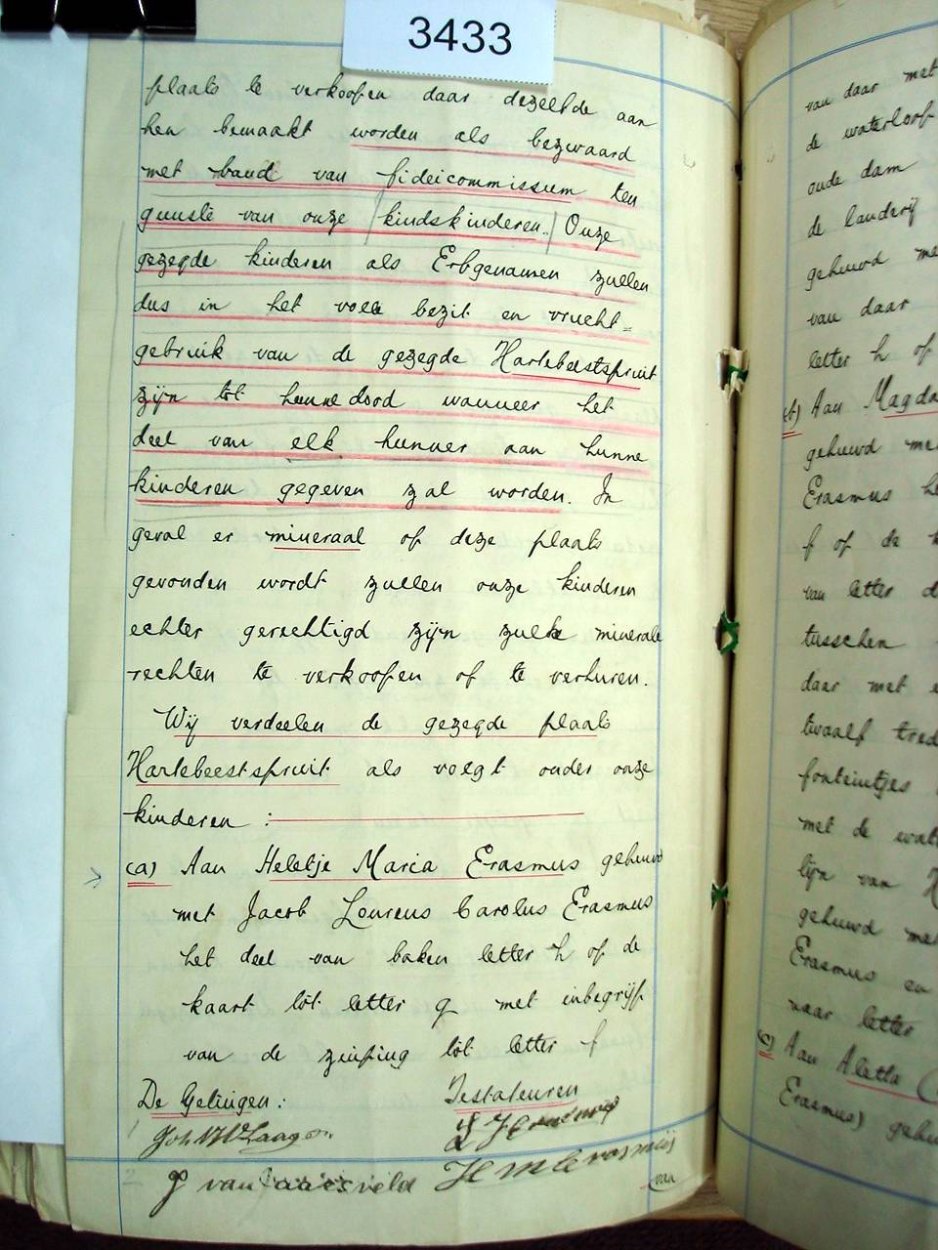 3433
plaats te verkoopen daar dezelfde aan
hen bemaakt worden als bezwaard
met band van fideicommissum ten
gunste van onze kindskinderen. Onze
gezegde kinderen als Erfgenamen zullen
dus in het volle bezit en vrucht=
gebruik van de gezegde Hartebeestspruit
zijn tot hunne dood wanneer het
deel van elk hunner aan hunne
kinderen gegeven zal worden. In
geval er mineraal op deze plaats
gevonden wordt zullen onze kinderen
echter gerechtigd zijn zulke minerale
rechten te verkoopen of te verhuren.
Wij verdeelen de gezegde plaats
Hartebeestspruit als volgt onder onze
kinderen :
(a) Aan Heletje Maria Erasmus gehuwd
met Jacob Lourens Carolus Erasmus
het deel van baken letter h op de
kaart tot letter g met inbegrip
van de zuiping tot letter f
De Getuigen: Testateuren
J van
van
van daar met
de waterloop
oude dam
de landerij
gehuwd me
van daar
letter h op
(b) Aan Magda
gehuwd me
Erasmus he
f op de
van letter d
tusschen
daar met e
twaalf tred
fonteintjes
met de wat
lijn van H
gehuwd met
Erasmus en
naar letter
(c) Aan Aletta
Erasmus) gehu